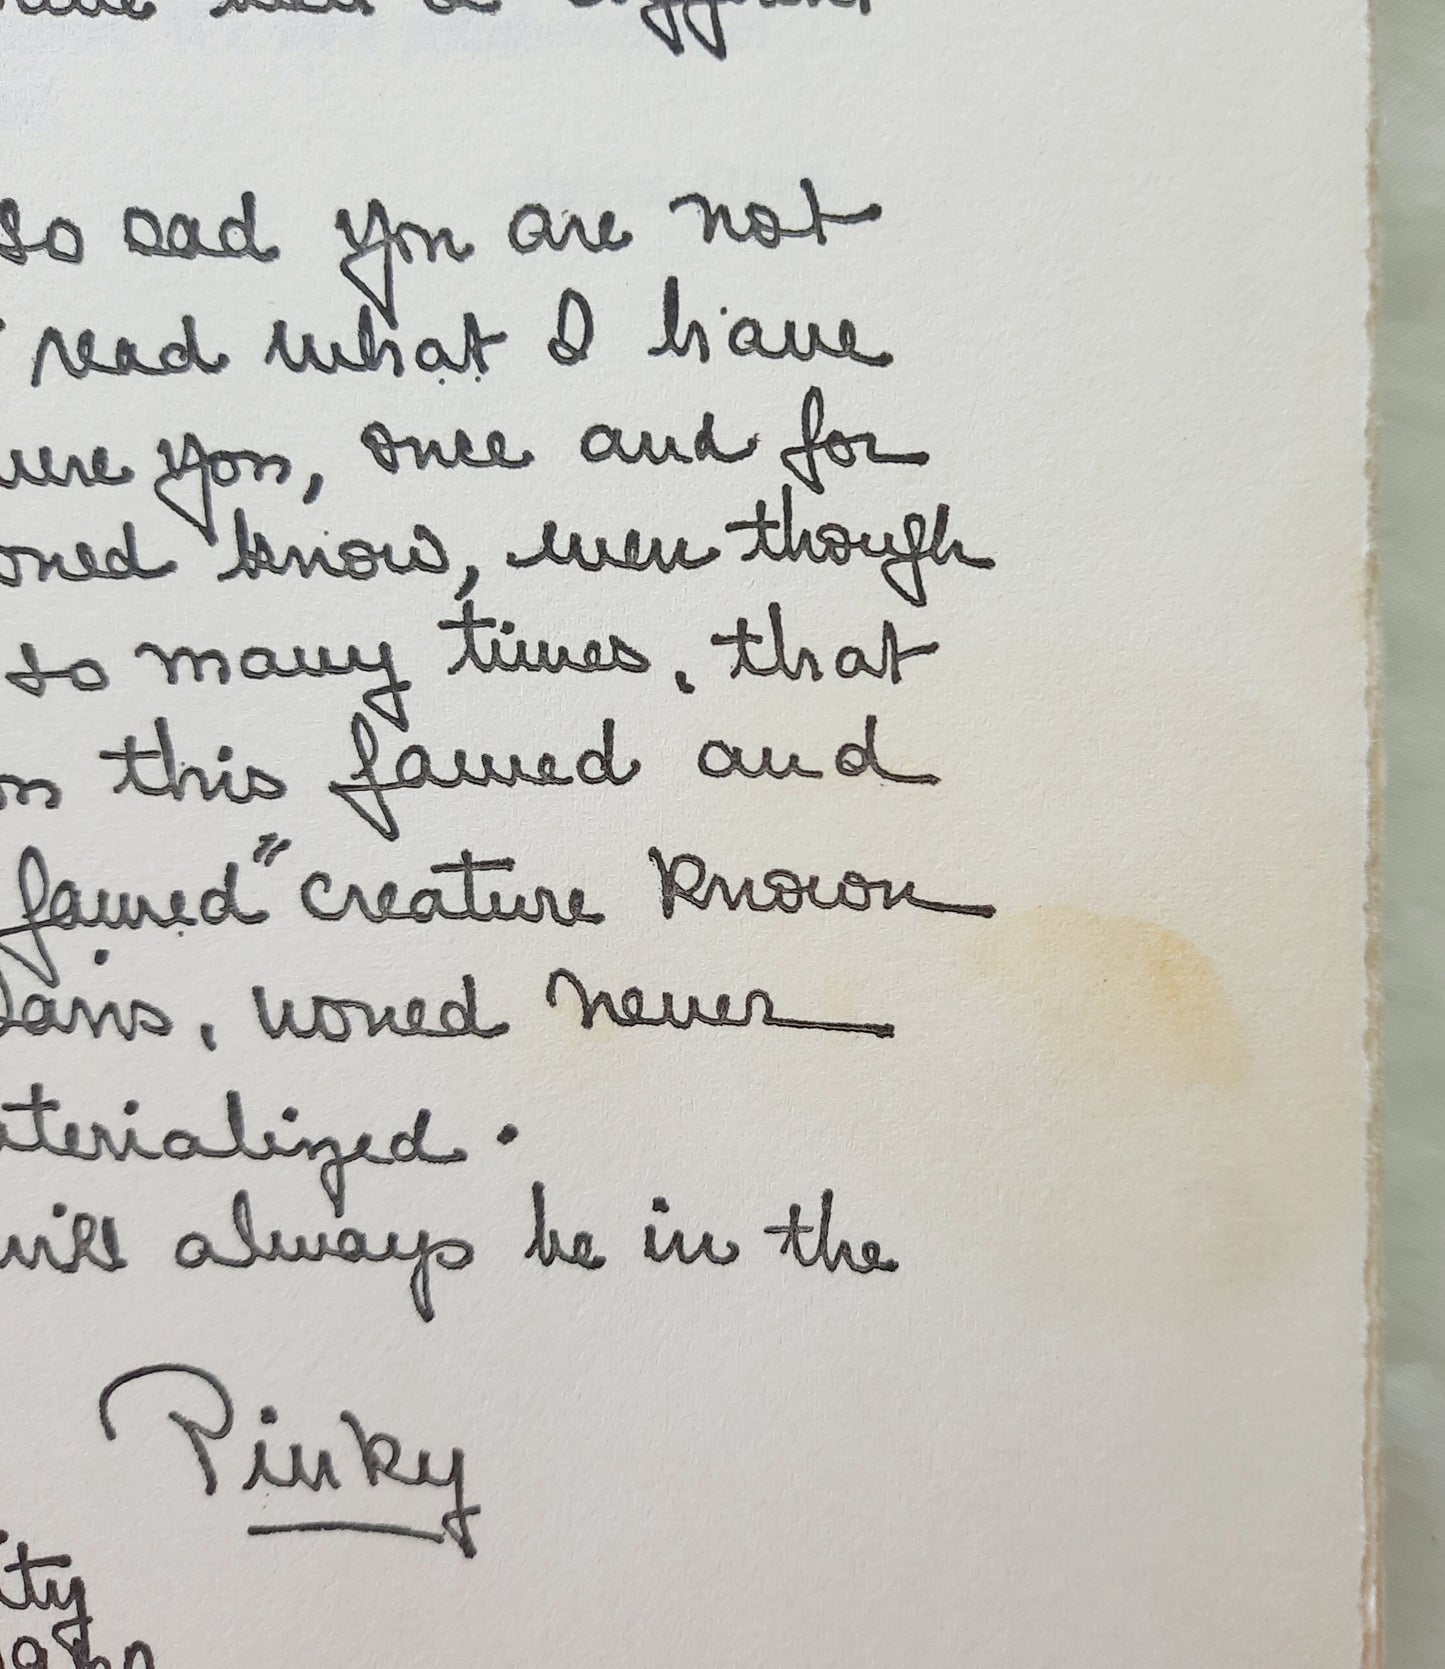 so sad you are not
read what I have
were you, once and for
know, even though
so many times, that
this famed and
famed" creature known
never
aterialized.
will always be in the
Pinky
ity